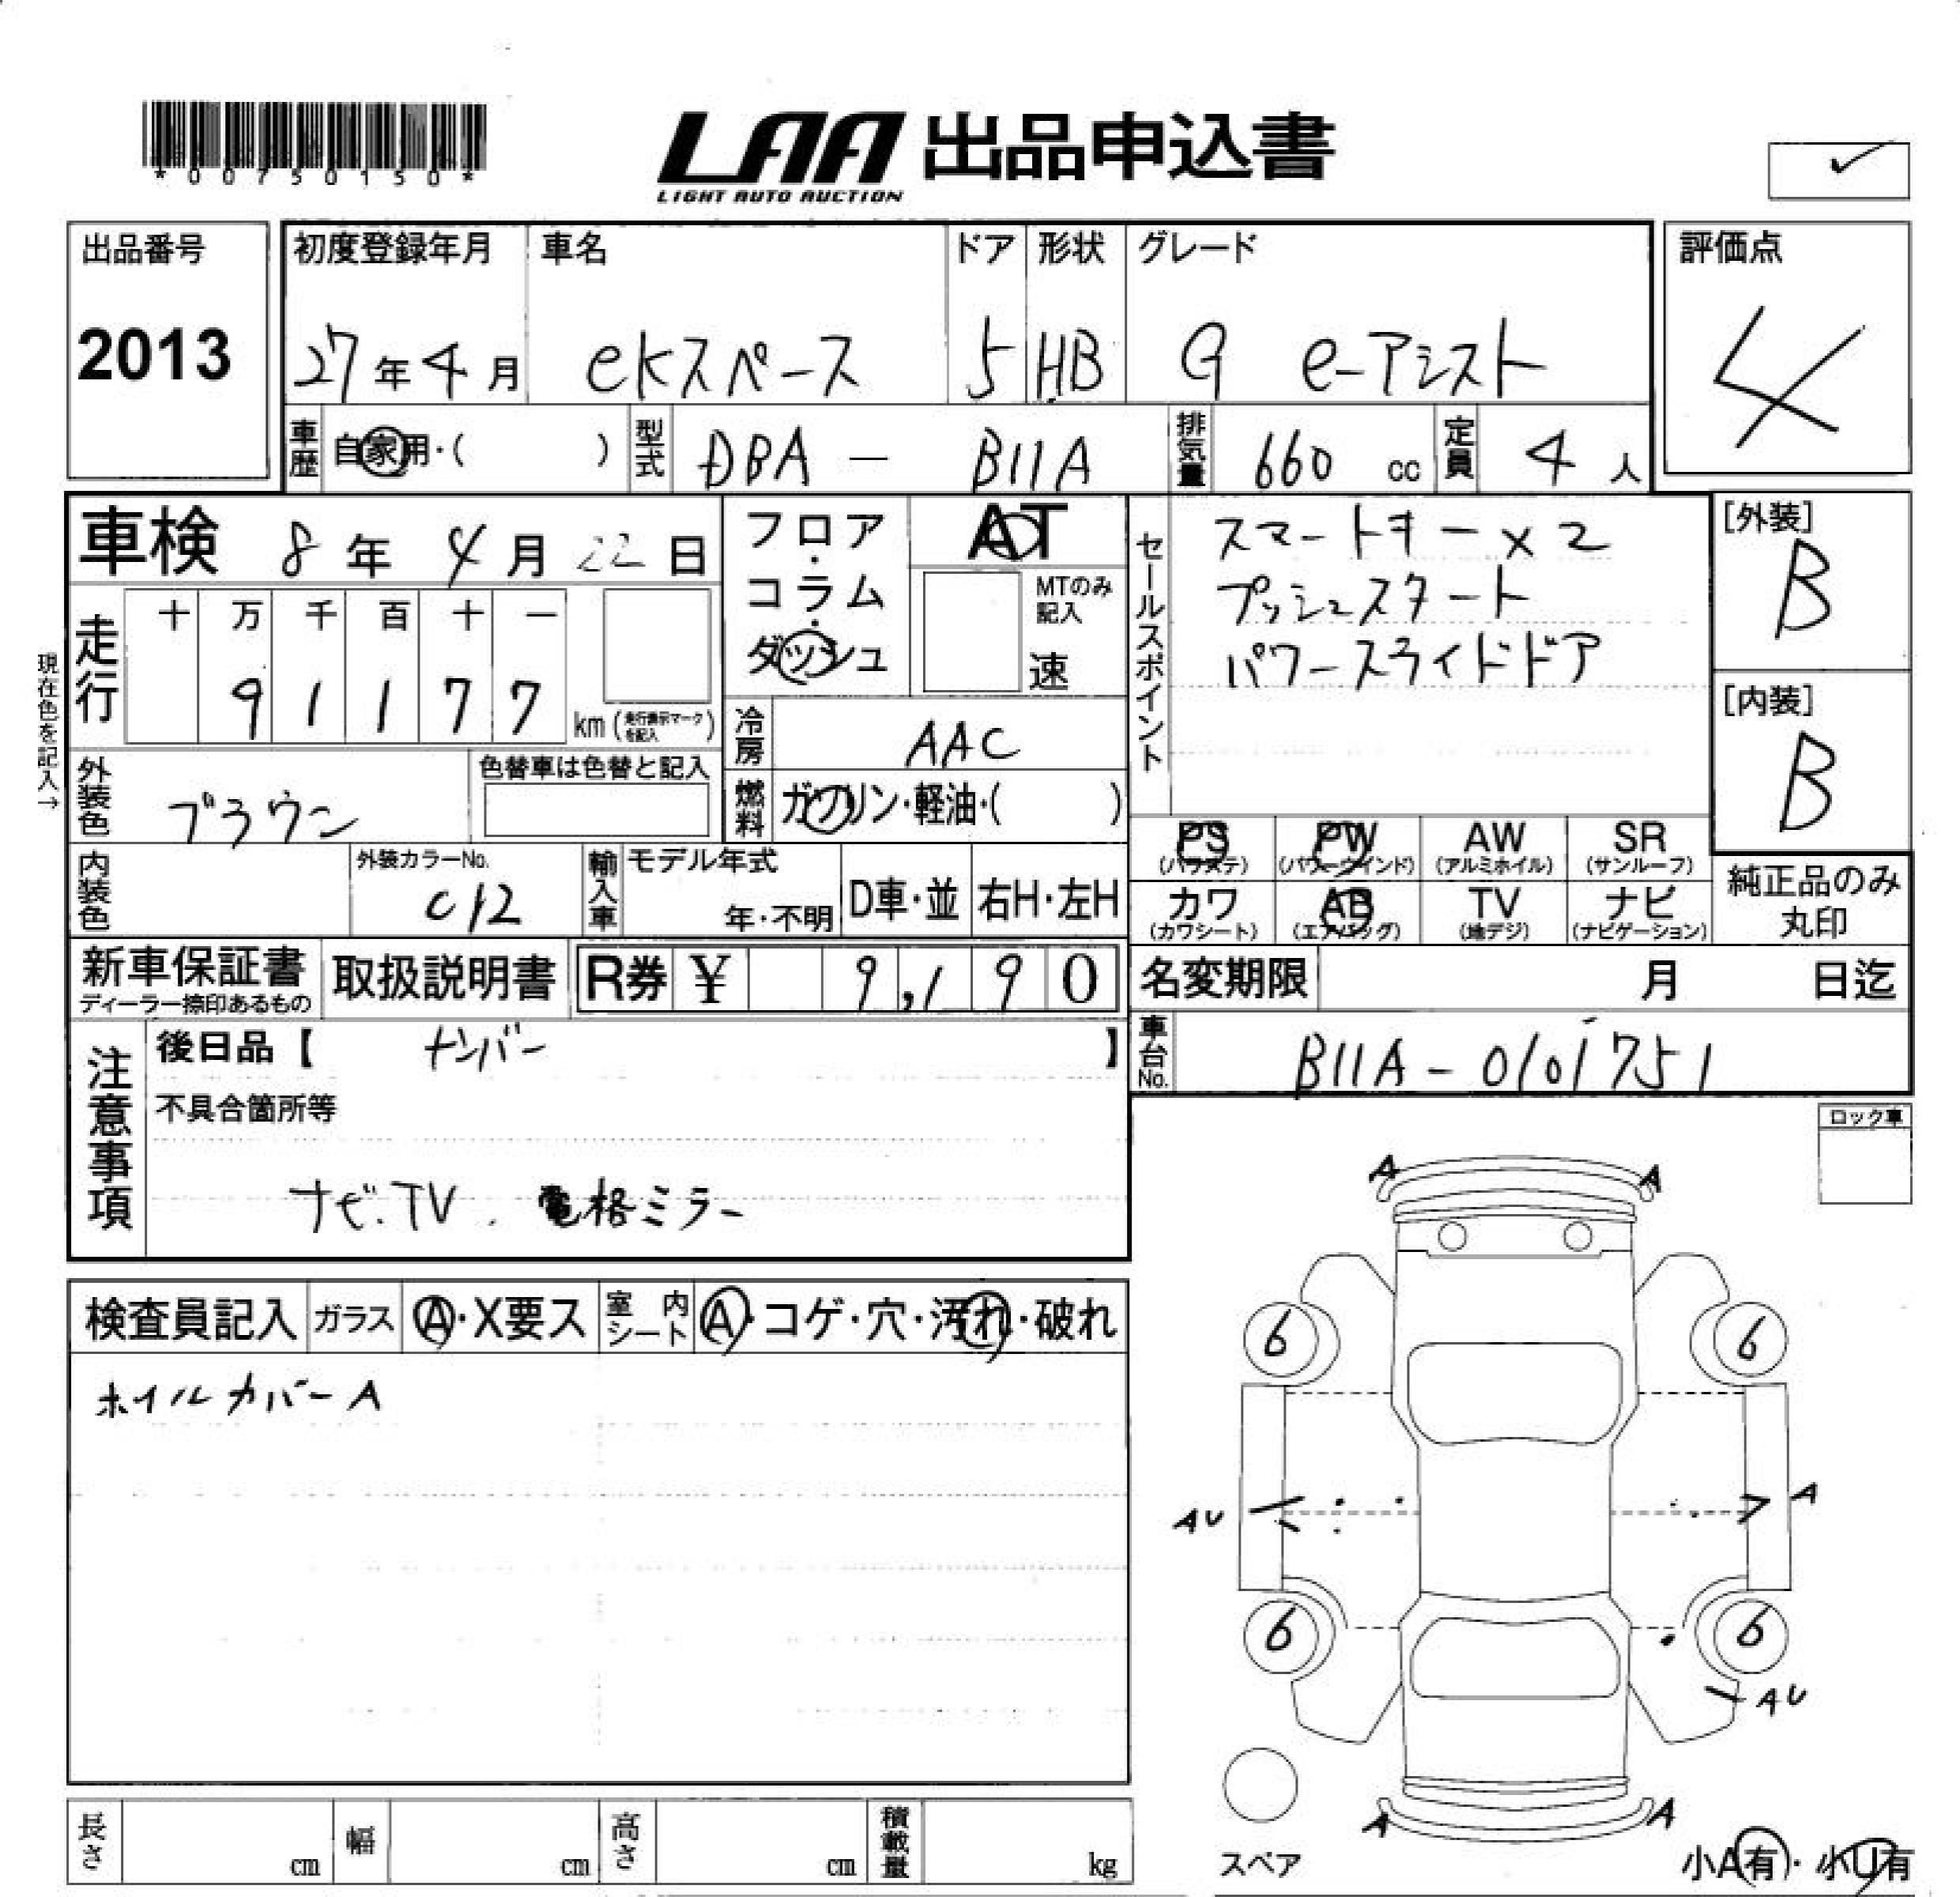 *00750150*
LAA 出品申込書
LIGHT AUTO AUCTION
出品番号
2013
初度登録年月
27年4月
車名
ekスペース
ドア
5
形状
HB
グレード
G e-アシスト
評価点
4
車歴
自家用・( )
型式
DBA - B11A
排気量
660 cc
定員
4 人
車検 8年4月22日
フロア・コラム・ダッシュ
AT
MTのみ記入
速
セールスポイント
スマートキー×2
プッシュスタート
パワースライドドア
[外装]
B
[内装]
B
現在色を記入→
走行
十 万 千 百 十 一
9 1 1 7 7
km (走行表示マークを記入)
冷房
AAC
外装色
ブラウン
色替車は色替と記入
燃料
ガソリン・軽油・( )
PS (パワステ)
PW (パワーウインド)
AW (アルミホイル)
SR (サンルーフ)
カワ (カワシート)
AB (エアバッグ)
TV (地デジ)
ナビ (ナビゲーション)
純正品のみ丸印
内装色
外装カラーNo.
C12
輸入車
モデル年式
年・不明
D車・並
右H・左H
新車保証書
ディーラー捺印あるもの
取扱説明書
R券 ¥ 9,190
名変期限 月 日迄
注意事項
後日品【 ナンバー 】
不具合箇所等
ナビ.TV. 電格ミラー
車台No.
B11A-0101751
ロック車
検査員記入
ガラス
A・X要ス
室内シート
A・コゲ・穴・汚れ・破れ
ホイルカバーA
A A
6 6
AU A
6 6
AU
A A
スペア
小A有・小U有
長さ cm
幅 cm
高さ cm
積載量 kg